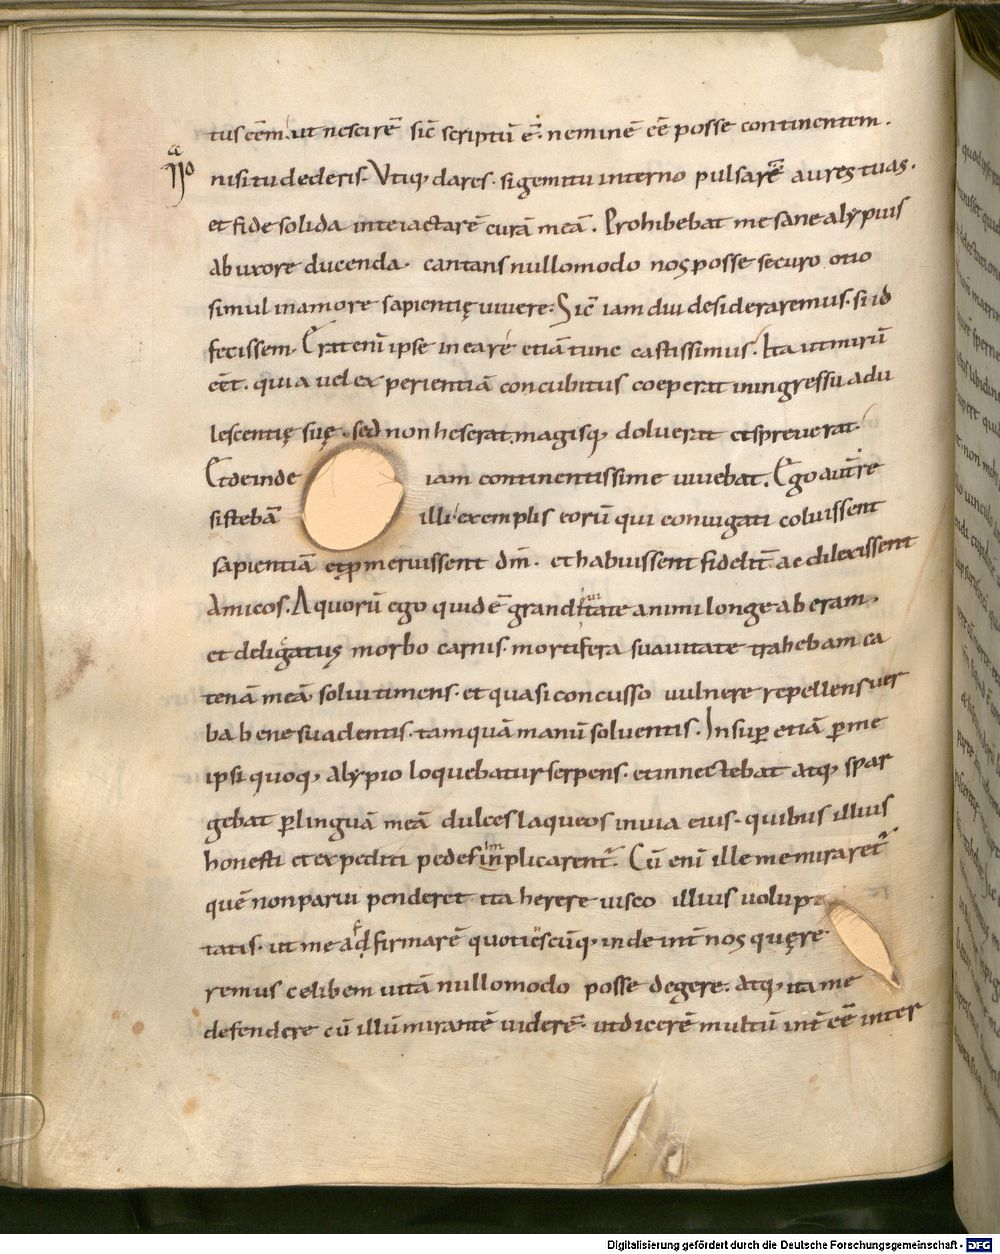 tus cēm. ut nescirē sic̄ scriptū ē. neminē eē posse continentem.
nisi tu dederis. Vtiq; dares. si gemitu interno pulsarē aures tuas.
et fide solida inte iactarē curā meā. Prohibebat me sane alypius
ab uxore ducenda. cantans nullomodo nos posse securo otio
simul in amore sapientię uiuere. Sic̄ iam diu desideraremus. si id
fecissem. Erat eni̅ ipse in ea re etiā tunc castissimus. Ita ut mirū
eēt. quia uel experientiā concubitus coeperat in ingressu adu
lescentię suę. sed non heserat. magisq; doluerat et spreuerat.
Et deinde iam continentissime uiuebat. Ego aut̄ re
sistebā illi exemplis eorū qui coniugati coluissent
sapientiā et ꝓmeruissent dm̄. et habuissent fidelit̄ ac dilexissent
Amicos. A quorū ego quidē granditate animi longe aberam.
et deligatus morbo carnis. mortifera suauitate trahebam ca
tenā meā solui timens. et quasi concusso uulnere repellens uer
ba bene suadentis. tamquā manū soluentis. Insuꝑ etiā ꝑ me
ipsi quoq; alypio loquebatur serpens. et innectebat atq; spar
gebat ꝑ linguā meā dulces laqueos in uia eius. quibus illius
honesti et expediti pedes inplicarent̄. Cū eni̅ ille me miraret̄
quē non parui penderet ita herere uisco illius uolup
tatis. ut me adfirmarē quotiescūq; inde int̄ nos quęre
remus celibem uitā nullomodo posse degere. atq; ita me
defendere cū illū mirantē uiderē. ut dicerē multū int̄ eē inter
Digitalisierung gefördert durch die Deutsche Forschungsgemeinschaft - DFG